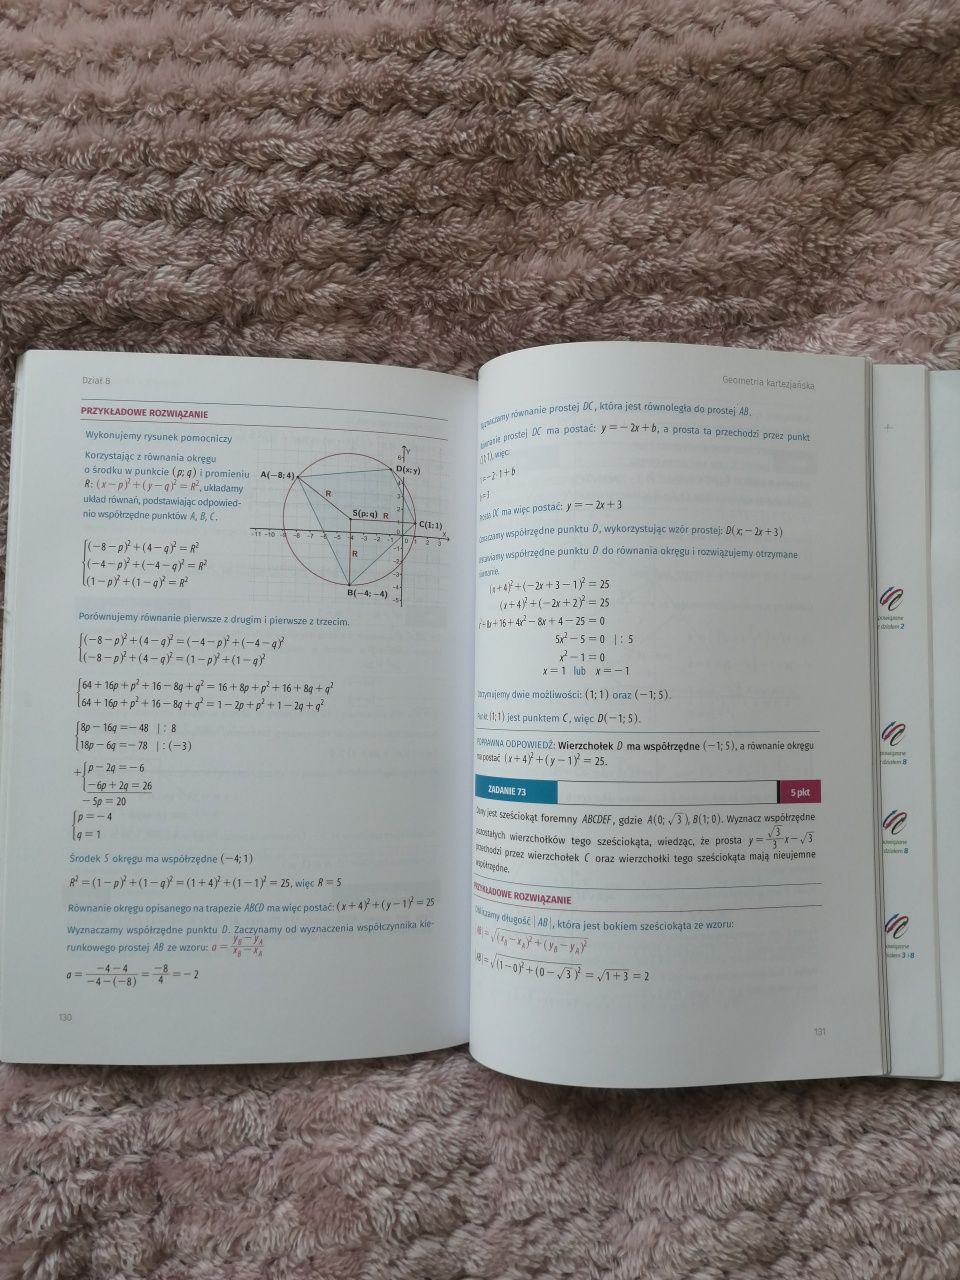 Dział 8
PRZYKŁADOWE ROZWIĄZANIE
Wykonujemy rysunek pomocniczy
Korzystając z równania okręgu
o środku w punkcie (p; q) i promieniu
R: (x − p)² + (y − q)² = R², układamy
układ równań, podstawiając odpowied-
nio współrzędne punktów A, B, C.
A(−8; 4)
D(x; y)
S(p; q)
R
R
R
C(1; 1)
B(−4; −4)
Y
X
(−8 − p)² + (4 − q)² = R²
(−4 − p)² + (−4 − q)² = R²
(1 − p)² + (1 − q)² = R²
Porównujemy równanie pierwsze z drugim i pierwsze z trzecim.
(−8 − p)² + (4 − q)² = (−4 − p)² + (−4 − q)²
(−8 − p)² + (4 − q)² = (1 − p)² + (1 − q)²
64 + 16p + p² + 16 − 8q + q² = 16 + 8p + p² + 16 + 8q + q²
64 + 16p + p² + 16 − 8q + q² = 1 − 2p + p² + 1 − 2q + q²
8p − 16q = −48 | : 8
18p − 6q = −78 | : (−3)
+ p − 2q = −6
−6p + 2q = 26
−5p = 20
p = −4
q = 1
Środek S okręgu ma współrzędne (−4; 1)
R² = (1 − p)² + (1 − q)² = (1 + 4)² + (1 − 1)² = 25, więc R = 5
Równanie okręgu opisanego na trapezie ABCD ma więc postać: (x + 4)² + (y − 1)² = 25
Wyznaczamy współrzędne punktu D. Zaczynamy od wyznaczenia współczynnika kie-
runkowego prostej AB ze wzoru: a = (y_B − y_A)/(x_B − x_A)
a = (−4 − 4)/(−4 − (−8)) = −8/4 = −2
130
Geometria kartezjańska
równanie prostej DC, która jest równoległa do prostej AB.
prostej DC ma postać: y = −2x + b, a prosta ta przechodzi przez punkt
(1; 1), więc:
1 = −2 · 1 + b
b = 3
Prosta DC ma więc postać: y = −2x + 3
współrzędne punktu D, wykorzystując wzór prostej: D(x; −2x + 3)
współrzędne punktu D do równania okręgu i rozwiązujemy otrzymane
równanie.
(x + 4)² + (−2x + 3 − 1)² = 25
(x + 4)² + (−2x + 2)² = 25
x² + 8x + 16 + 4x² − 8x + 4 − 25 = 0
5x² − 5 = 0 | : 5
x² − 1 = 0
x = 1 lub x = −1
Otrzymujemy dwie możliwości: (1; 1) oraz (−1; 5).
Punkt (1; 1) jest punktem C, więc D(−1; 5).
POPRAWNA ODPOWIEDŹ: Wierzchołek D ma współrzędne (−1; 5), a równanie okręgu
ma postać (x + 4)² + (y − 1)² = 25.
ZADANIE 73
5 pkt
Dany jest sześciokąt foremny ABCDEF, gdzie A(0; √3), B(1; 0). Wyznacz współrzędne
pozostałych wierzchołków tego sześciokąta, wiedząc, że prosta y = √3/3 x − √3
przechodzi przez wierzchołek C oraz wierzchołki tego sześciokąta mają nieujemne
współrzędne.
PRZYKŁADOWE ROZWIĄZANIE
Obliczamy długość |AB|, która jest bokiem sześciokąta ze wzoru:
|AB| = √((x_B − x_A)² + (y_B − y_A)²)
|AB| = √((1 − 0)² + (0 − √3)²) = √(1 + 3) = 2
131
powiązane
z działem 2
powiązane
z działem 8
powiązane
z działem 8
powiązane
z działem 3 i 8